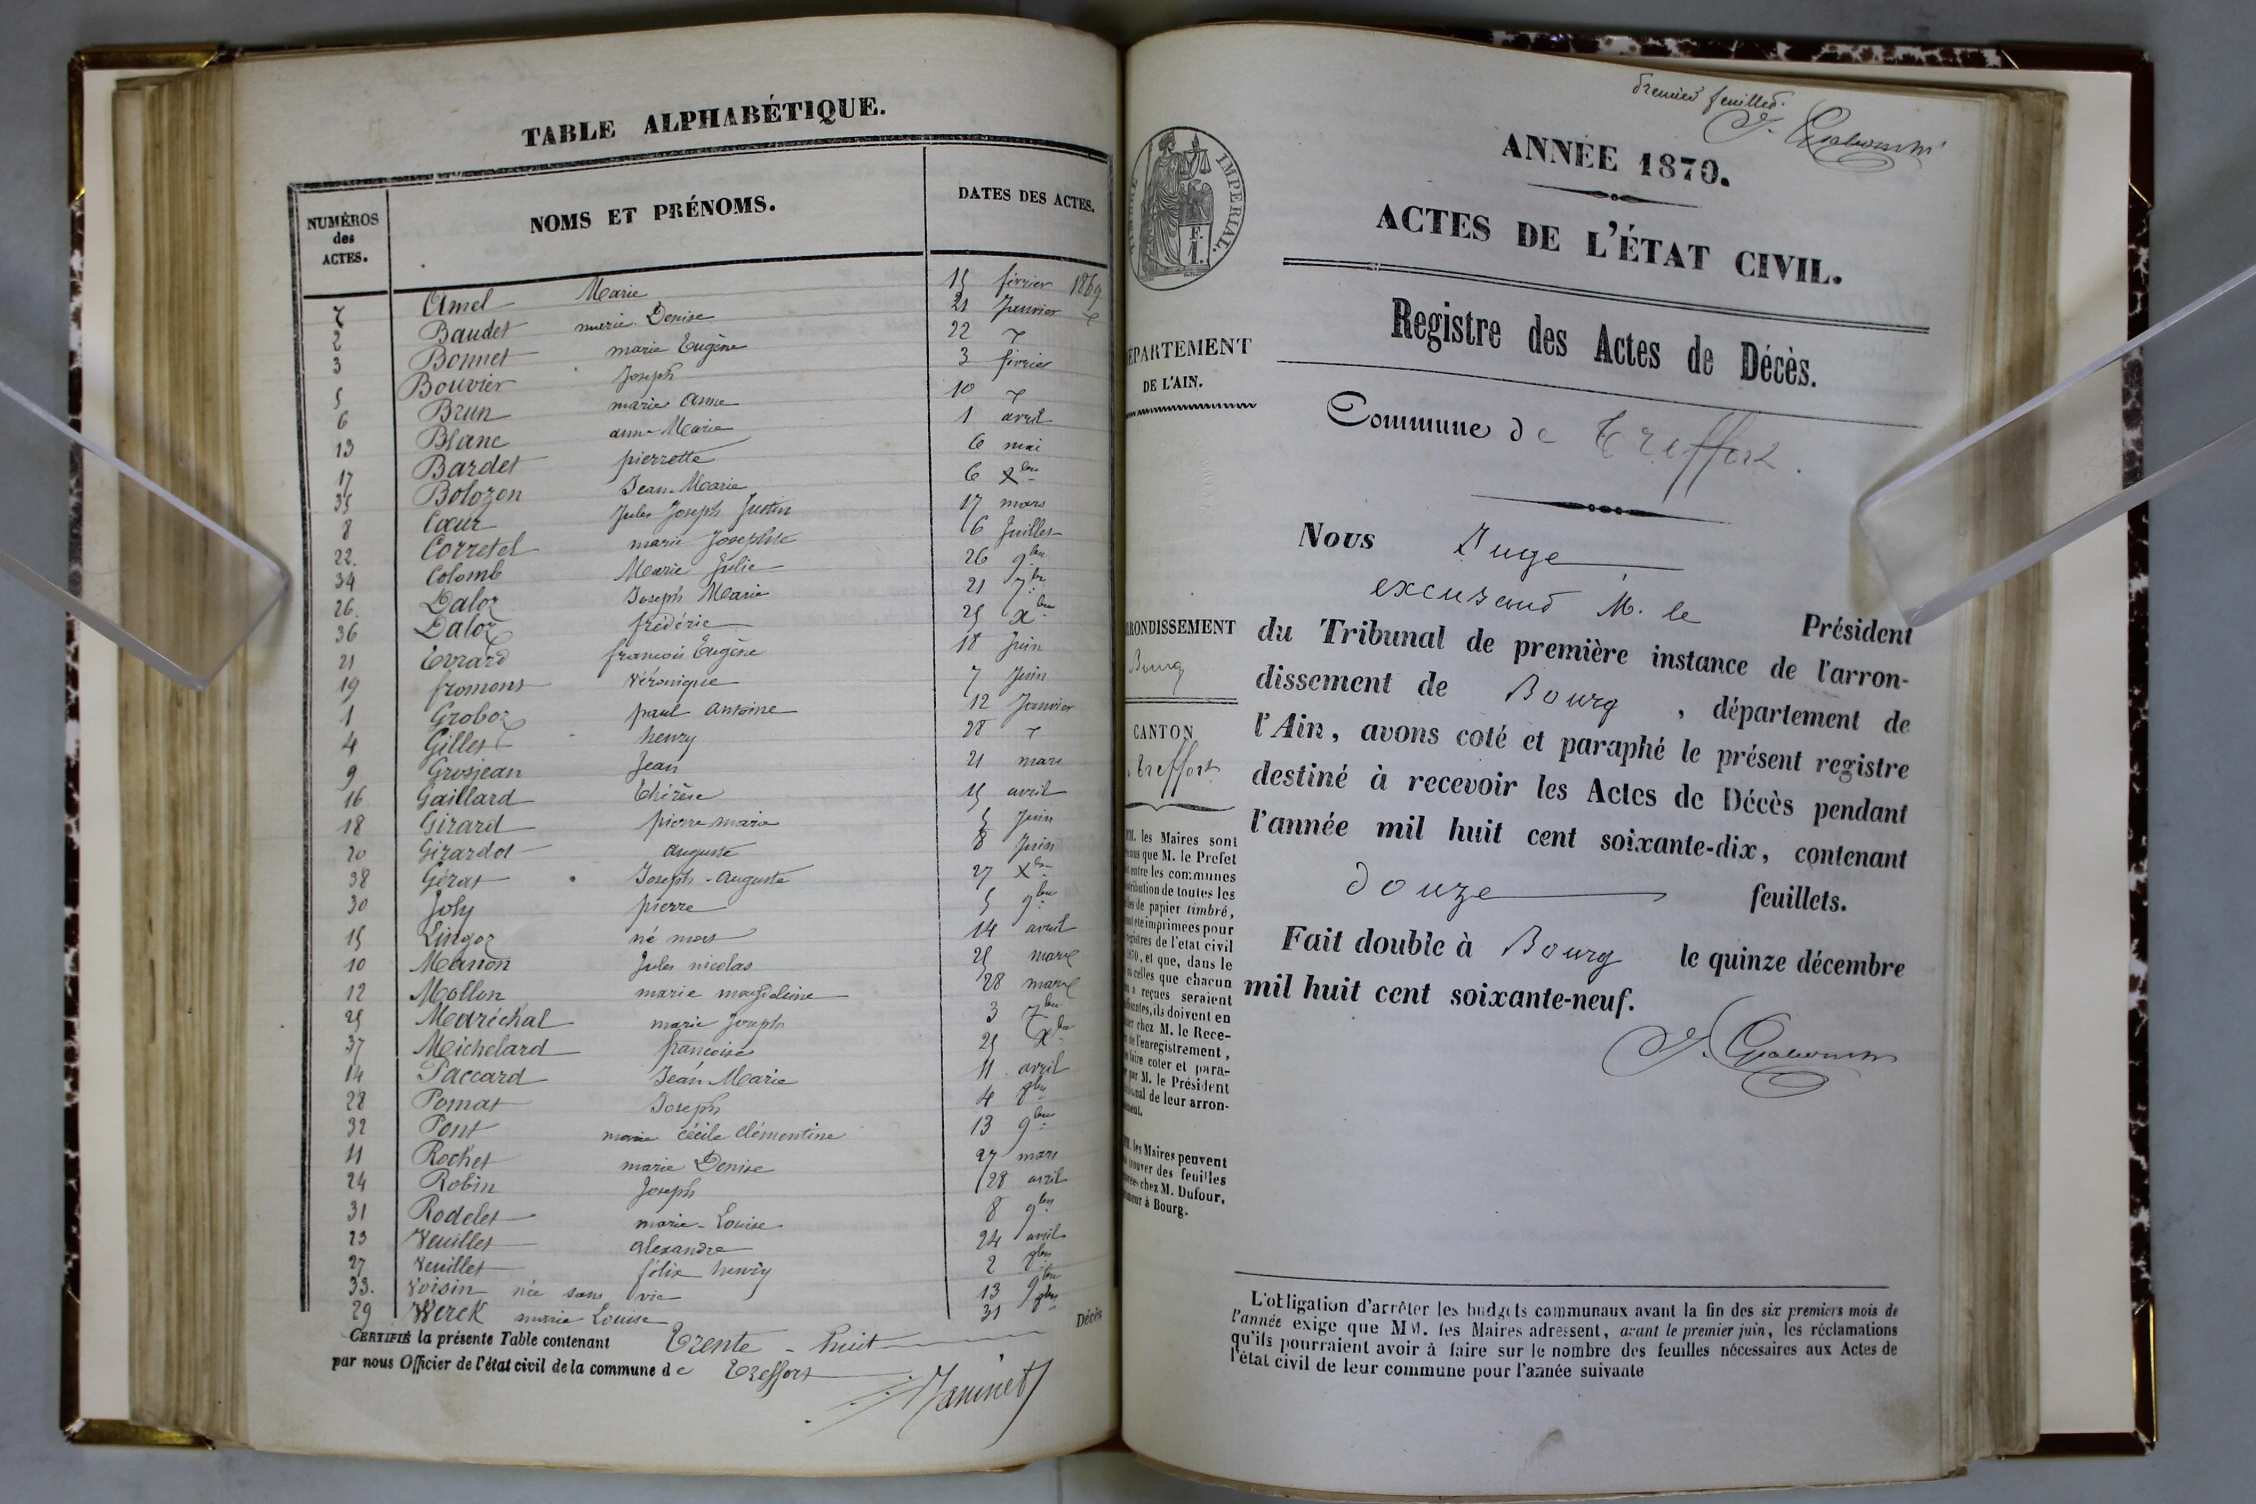 TABLE ALPHABÉTIQUE.
NUMÉROS des ACTES. NOMS ET PRÉNOMS. DATES DES ACTES.
7 Amel Marie 15 février 1869
2 Baudet marie Denise 21 Janvier
3 Bonnet marie Eugène 22
Bouvier Joseph 3 février
5
6 Brun marie anne 10
13 Blanc anne Marie 1 avril
17 Bardet pierrette 6 mai
35 Bolozon Jean-Marie 6 Xbre
8 Cœur Jules Joseph Justin 17 mars
22. Corretel marie Josephte 6 Juillet
34 Colomb Marie Julie 26 9bre
26. Daloz Joseph Marie 21 7bre
36 Daloz frédéric 25 Xbre
21 Evrard francois Eugène 18 Juin
19 fromont Véronique 7 Juin
1 Groboz paul antoine 12 Janvier
4 Gillet henry 28
9 Grosjean Jean 21 mars
16 Gaillard thérèse 15 avril
18 Girard pierre marie 5 Juin
20 Girardot auguste 8 Juin
38 Gérat Joseph-auguste 27 Xbre
30 Joly pierre 5 9bre
15 Lingoz né mort 14 avril
10 Manon Jules nicolas 25 mars
12 Mollon marie magdeleine 28 mars
25 Maréchal marie Joseph 3 7bre
37 Michelard francoise 25 Xbre
14 Paccard Jean Marie 11 avril
28 Pomat Joseph 4 8bre
32 Pont marie Cécile Clémentine 13 9bre
11 Rochet marie Denise 27 mars
24 Robin Joseph 28 avril
31 Rodelet marie-Louise 8 9bre
23 Veuillet alexandre 24 avril
27 Veuillet félix henry 2 8bre
33. Voisin née sans vie 13 9bre
29 Werck marie Louise 31 8bre
CERTIFIÉ la présente Table contenant Trente-huit Décès
par nous Officier de l'état civil de la commune de Treffort
Janinet
premier feuillet.
ANNÉE 1870.
ACTES DE L'ÉTAT CIVIL.
IMPÉRIAL.
F.
1.
Registre des Actes de Décès.
DÉPARTEMENT
DE L'AIN.
Commune de Treffort.
Nous Juge
excusant M. le Président
du Tribunal de première instance de l'arron-
dissement de Bourg, département de
l'Ain, avons coté et paraphé le présent registre
destiné à recevoir les Actes de Décès pendant
l'année mil huit cent soixante-dix, contenant
douze feuillets.
Fait double à Bourg le quinze décembre
mil huit cent soixante-neuf.
ARRONDISSEMENT
Bourg
CANTON
Treffort
MM. les Maires sont
que M. le Préfet
entre les communes
distribution de toutes les
de papier timbré,
été imprimées pour
registres de l'état civil
1870, et que, dans le
celles que chacun
a reçues seraient
ils doivent en
chez M. le Rece-
de l'enregistrement,
faire coter et para-
par M. le Président
de leur arron-
MM. les Maires peuvent
trouver des feuilles
chez M. Dufour,
à Bourg.
L'obligation d'arrêter les budgets communaux avant la fin des six premiers mois de
l'année exige que MM. les Maires adressent, avant le premier juin, les réclamations
qu'ils pourraient avoir à faire sur le nombre des feuilles nécessaires aux Actes de
l'état civil de leur commune pour l'année suivante